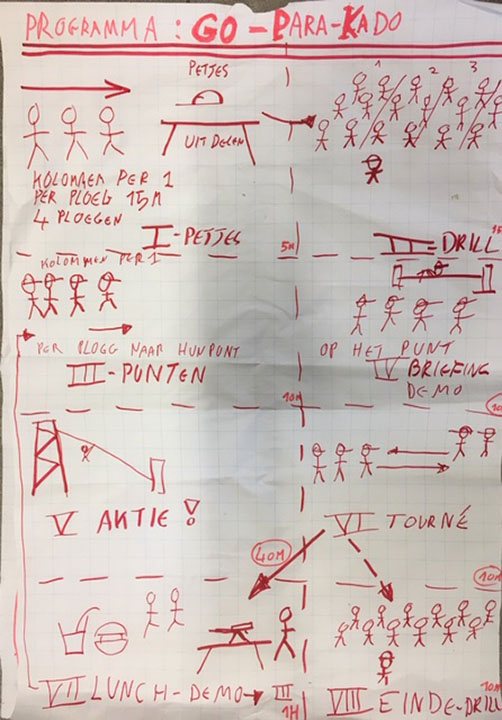 PROGRAMMA : GO-PARA-KADO
PETJES
1 2 3
UITDELEN
KOLOMMEN PER 1
PER PLOEG 15M
4 PLOEGEN
I-PETJES
5M
II=DRILL
15
KOLOMMEN PER 1
PER PLOGG NAAR HUN PUNT
III-PUNTEN
10M
OP HET PUNT
IV BRIEFING
DEMO
10
V AKTIE!
VI TOURNÉ
40M
10M
VII LUNCH-DEMO→III
1H
VIII EINDE-DRILL
10M